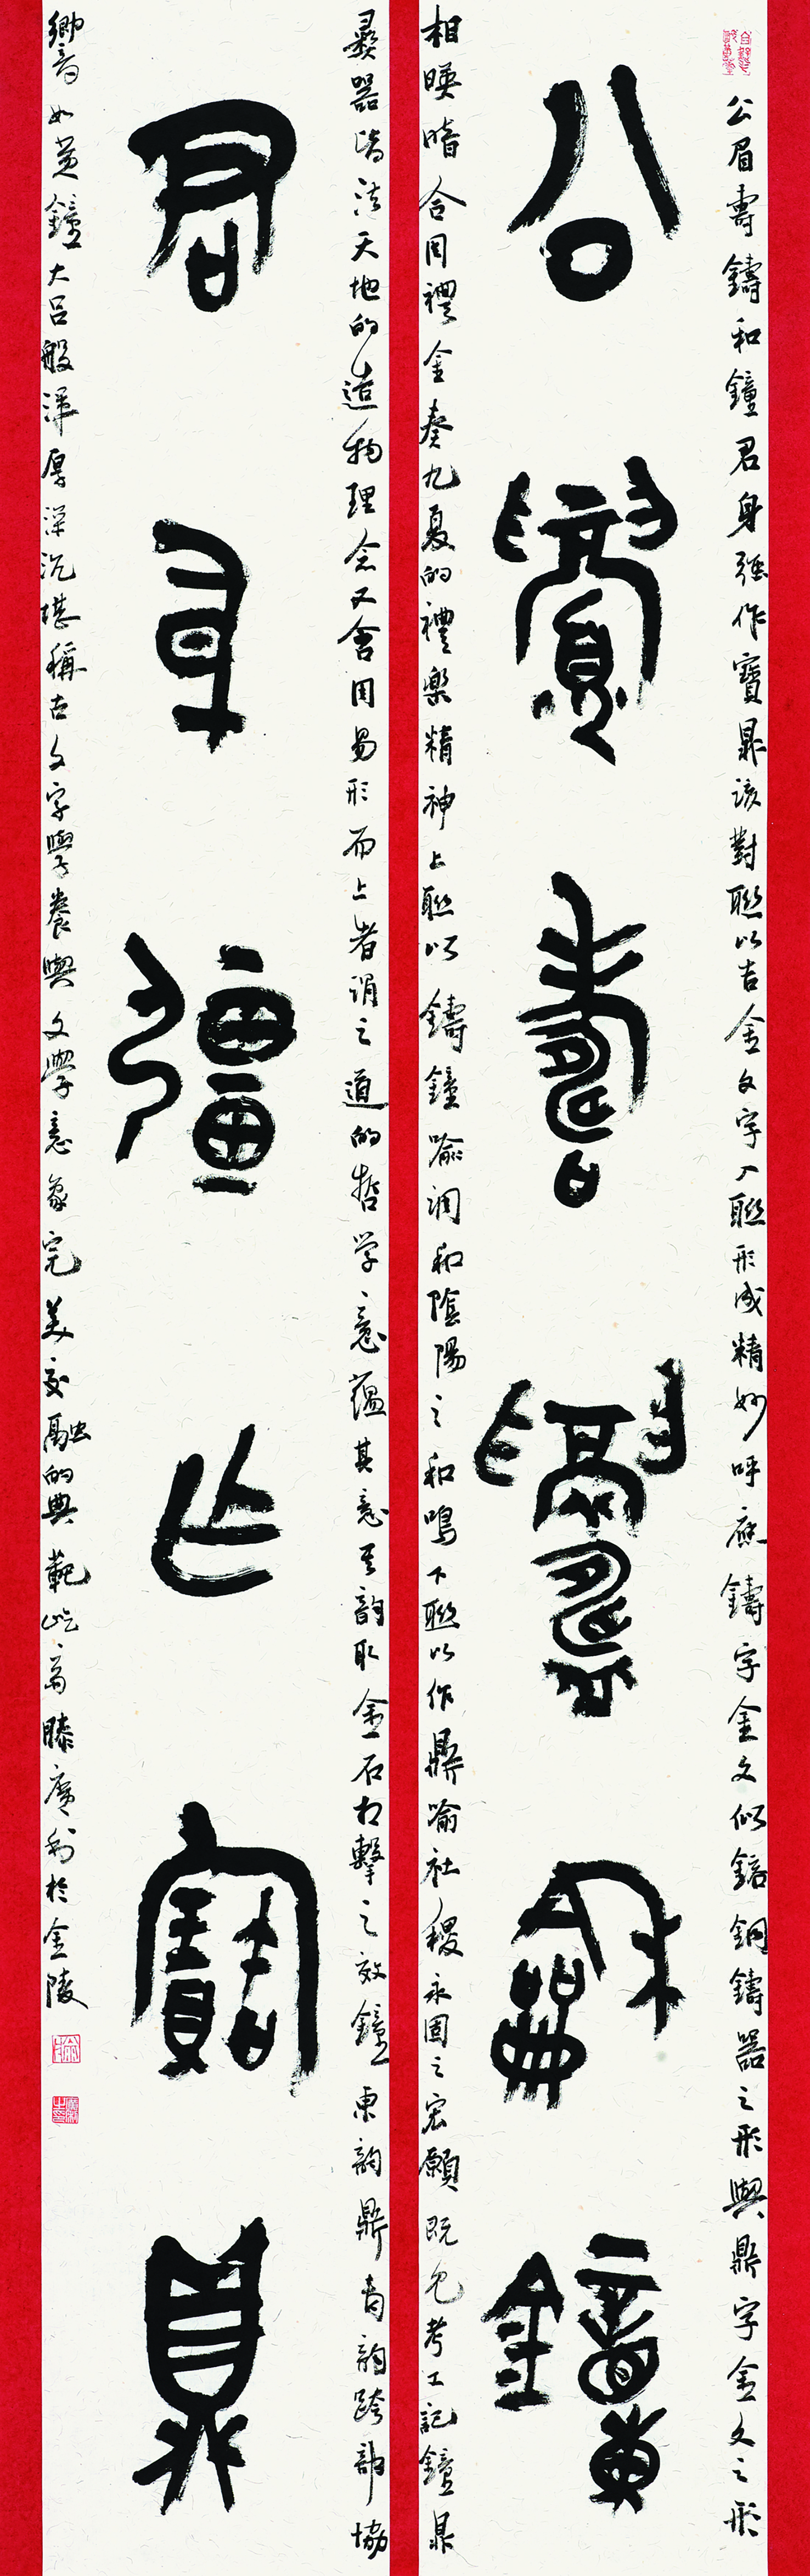 公眉壽鑄和鐘君身強作寶鼎該對聯以吉金文字入聯形成精妙呼應鑄字金文似鎔銅鑄器之形與鼎字金文之形
公眉壽鑄龢鐘
相暎暗合周禮金奏九夏的禮樂精神上聯以鑄鐘喻調和陰陽之和鳴下聯以作鼎喻社稷永固之宏願既包考工記鐘鼎
彝器皆法天地的造物理念又含周易形而上者謂之道的哲学意蘊其意其韵取金石相擊之效鐘東韵鼎青韵跨部協
君身彊作寶鼎
嚮音如黃鐘大呂般渾厚深沉堪稱古文字學養與文學意象完美交融的典範屹翁滕廣利於金陵